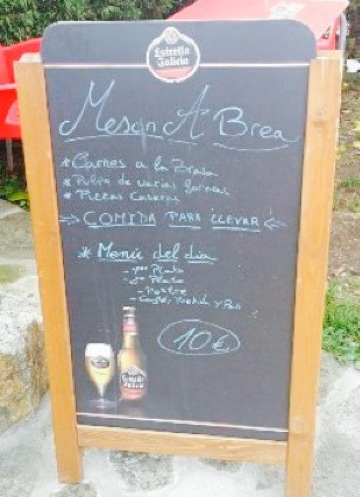 Estrella
Galicia
Mesón A Brea
* Carnes a la Brasa
* Pulpo de varias formas
* Pizzas Caseras
COMIDA PARA LLEVAR
* Menú del día
- 1er Plato
- 2º Plato
- Postre
- Café, Bebida y Pan
10€